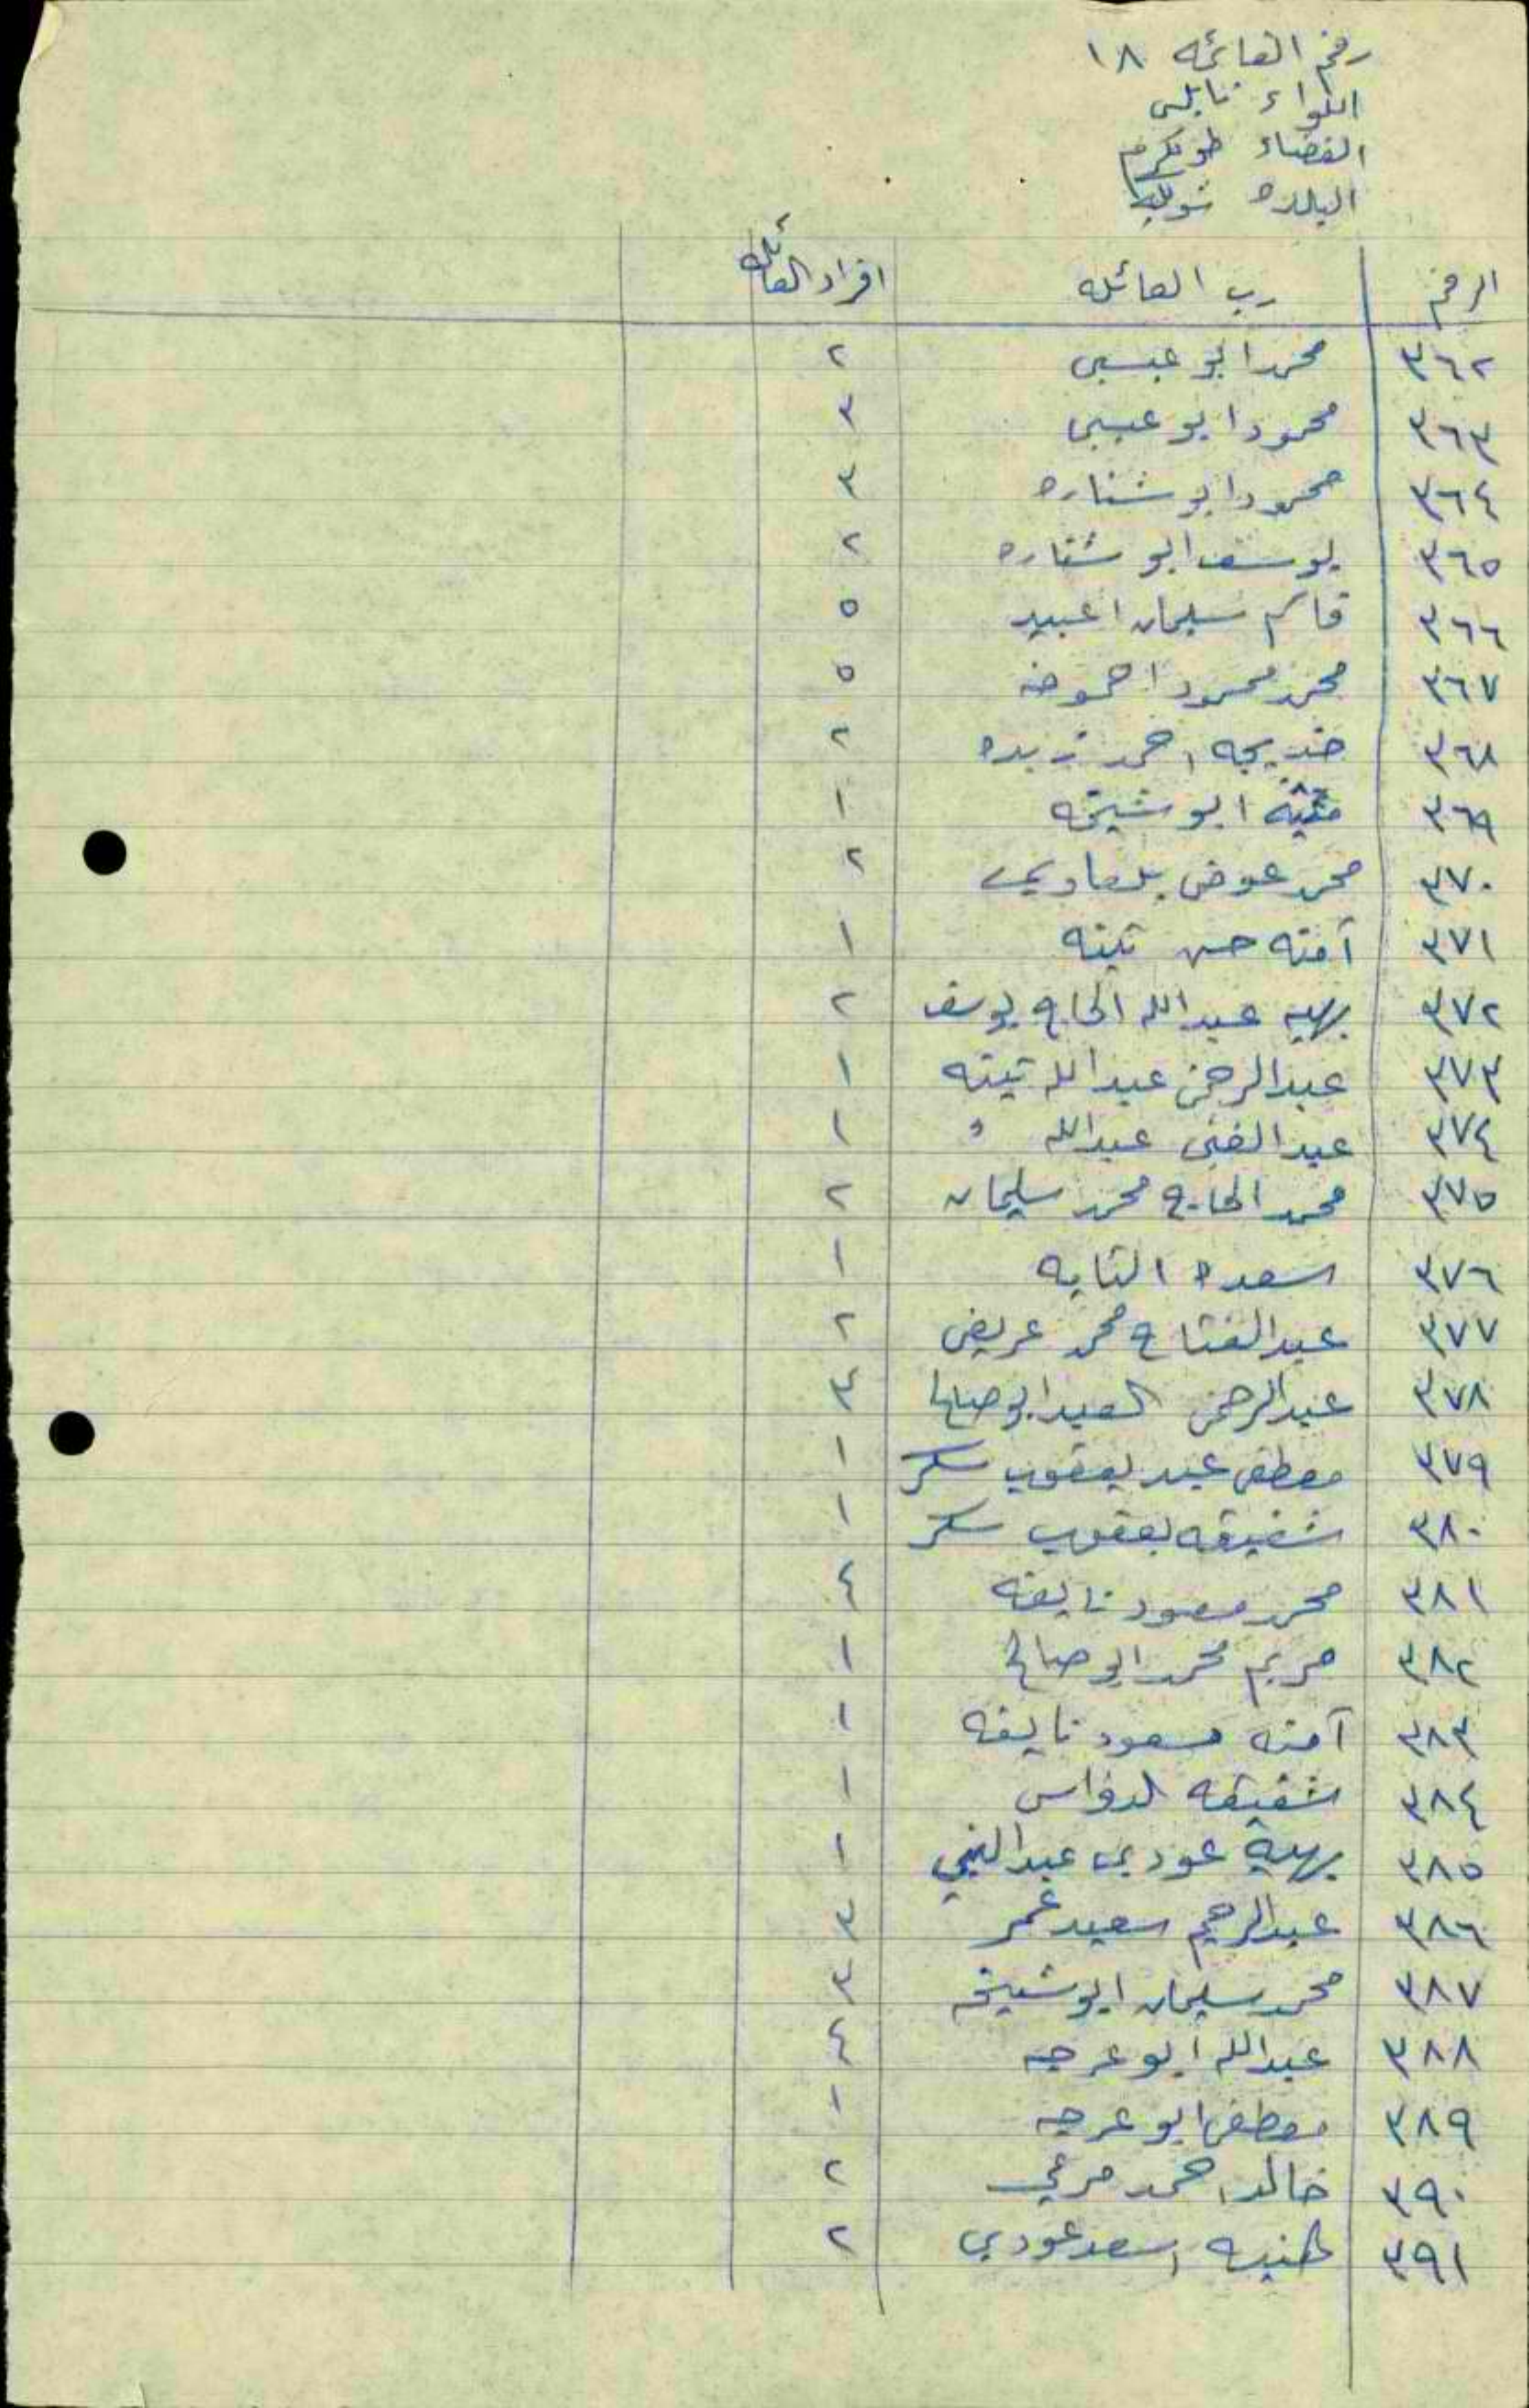 رقم القائمه ١٨
اللواء نابلس
القضاء طولكرم
البلده شويكه
الرقم رب العائله افراد العائله
٣٦٢ محمد ابو عيسى ٢
٣٦٣ محمود ابو عيسى ٣
٣٦٤ محمود ابو شناره ٣
٣٦٥ يوسف ابو شناره ٢
٣٦٦ قاسم سليمان اعبيد ٥
٣٦٧ محمد محمود احموضه ٥
٣٦٨ خديجه احمد زبده ٢
٣٦٩ ابو شيخه ١
٣٧٠ محمد عوض بلعاوي ٢
٣٧١ آمنه حسن تينه ١
٣٧٢ بهيه عبدالله الحاج يوسف ٢
٣٧٣ عبدالرحمن عبدالله تينه ١
٣٧٤ عبدالغني عبدالله " ١
٣٧٥ محمد الحاج محمد سليمان ٢
٣٧٦ سعده التايه ١
٣٧٧ عبدالفتاح محمد عريض ٢
٣٧٨ عبدالرحمن السعيد ابو صالح ٣
٣٧٩ مصطفى عبد يعقوب سكر ١
٣٨٠ شفيقه يعقوب سكر ١
٣٨١ محمد مسعود نايفه ٤
٣٨٢ مريم محمد ابو صالح ١
٣٨٣ آمنه مسعود نايفه ١
٣٨٤ شفيقه الدواس ١
٣٨٥ بهية عودي عبدالنبي ١
٣٨٦ عبدالرحيم سعيد عمر ٣
٣٨٧ محمد سليمان ابو شيخه ٣
٣٨٨ عبدالله ابو عرجه ٤
٣٨٩ مصطفى ابو عرجه ١
٣٩٠ خالد احمد مرعي ٢
٣٩١ اسعد عودي ٢